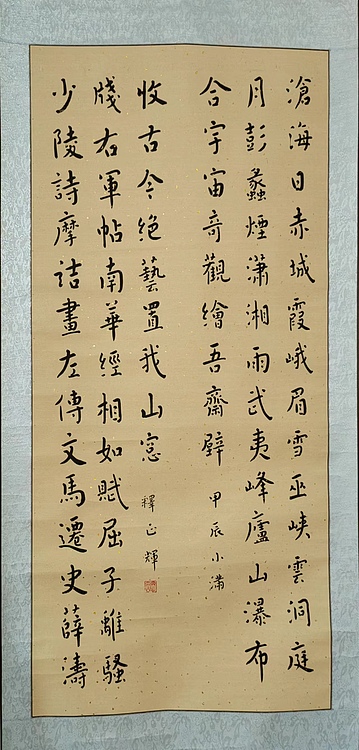 滄海日赤城霞峨眉雪巫峽雲洞庭
月彭蠡煙瀟湘雨武夷峰廬山瀑布
合宇宙奇觀繪吾齋壁
甲辰小滿
少陵詩摩詰畫左傳文馬遷史薛濤
牋右軍帖南華經相如賦屈子離騷
收古今絕藝置我山窓
釋正輝